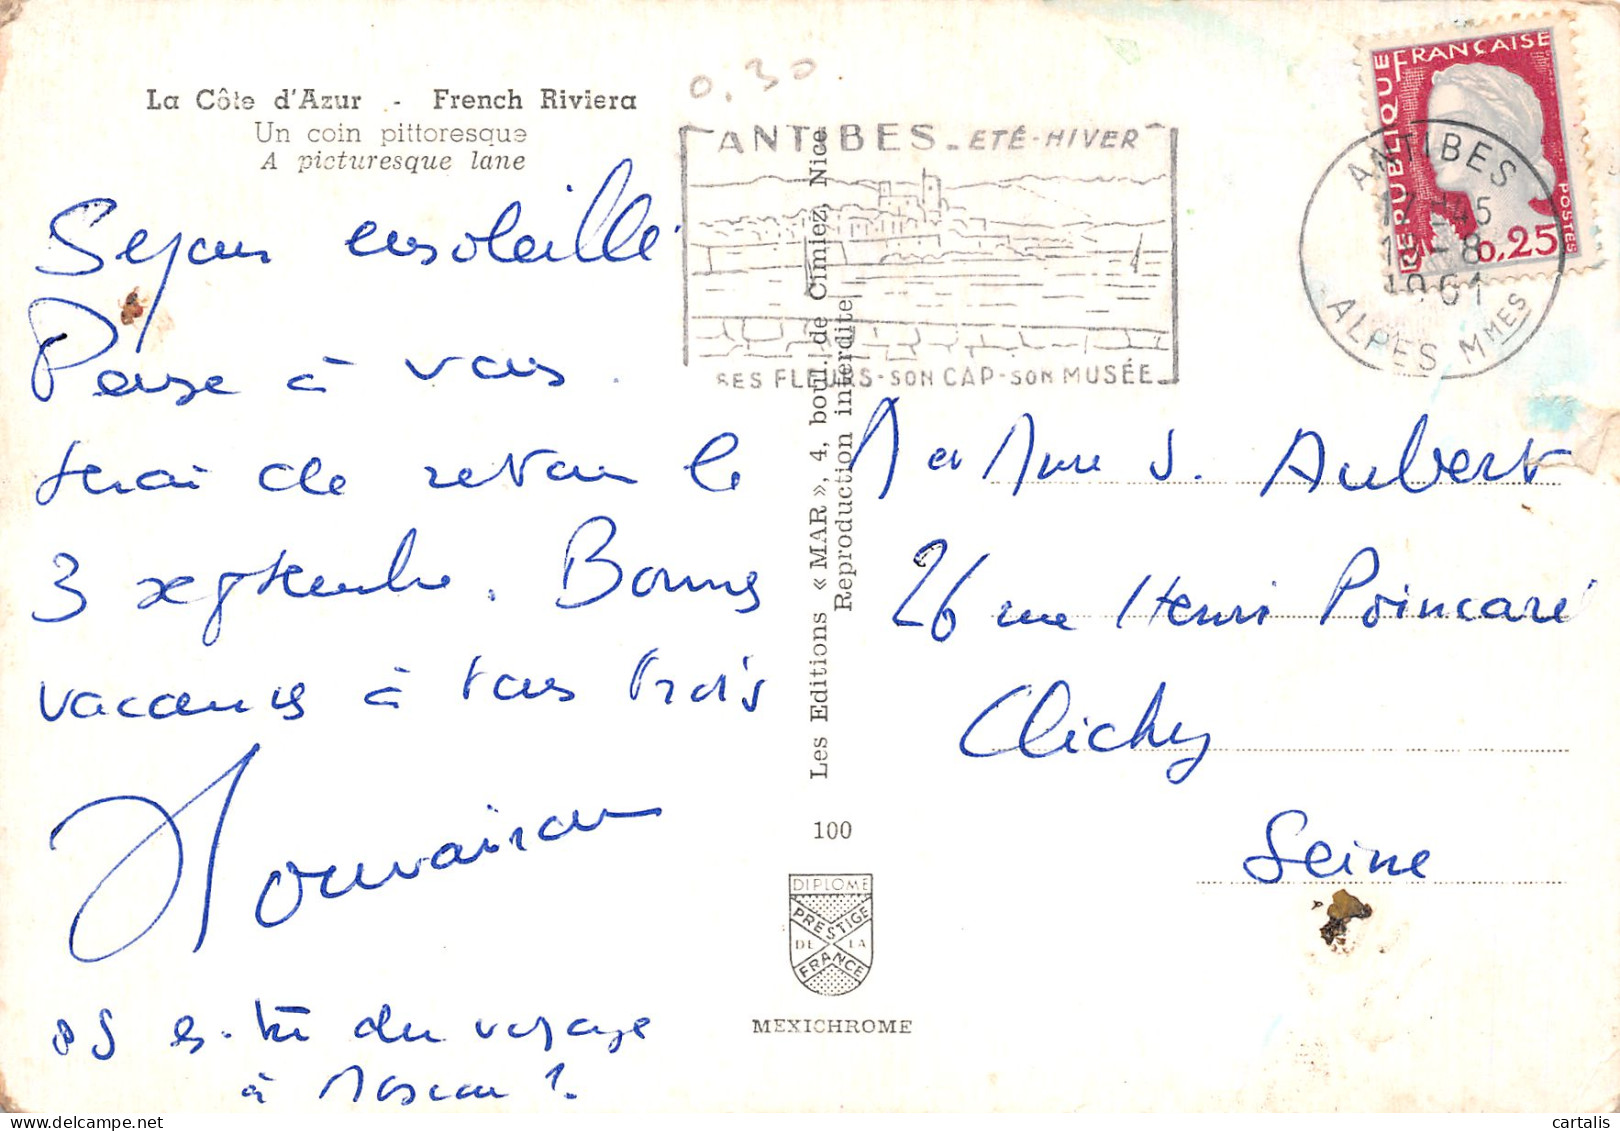 La Côte d'Azur - French Riviera
Un coin pittoresque
A picturesque lane
Séjour ensoleillé
Pense à vous.
serai de retour le
3 septembre. Bonnes
vacances à tous trois
PS es-tu du voyage
à Moscou ?
0.30
ANTIBES - ETÉ-HIVER
SES FLEURS - SON CAP - SON MUSÉE
Les Editions « MAR », 4, boul. de Cimiez, Nice
Reproduction interdite
100
DIPLOME
PRESTIGE
DE LA
FRANCE
MEXICHROME
REPUBLIQUE FRANÇAISE
POSTES
0,25
ANTIBES
17H45
-8
1961
ALPES MMES
M et Mme J. Aubert
26 rue Henri Poincaré
Clichy
Seine
cartalis